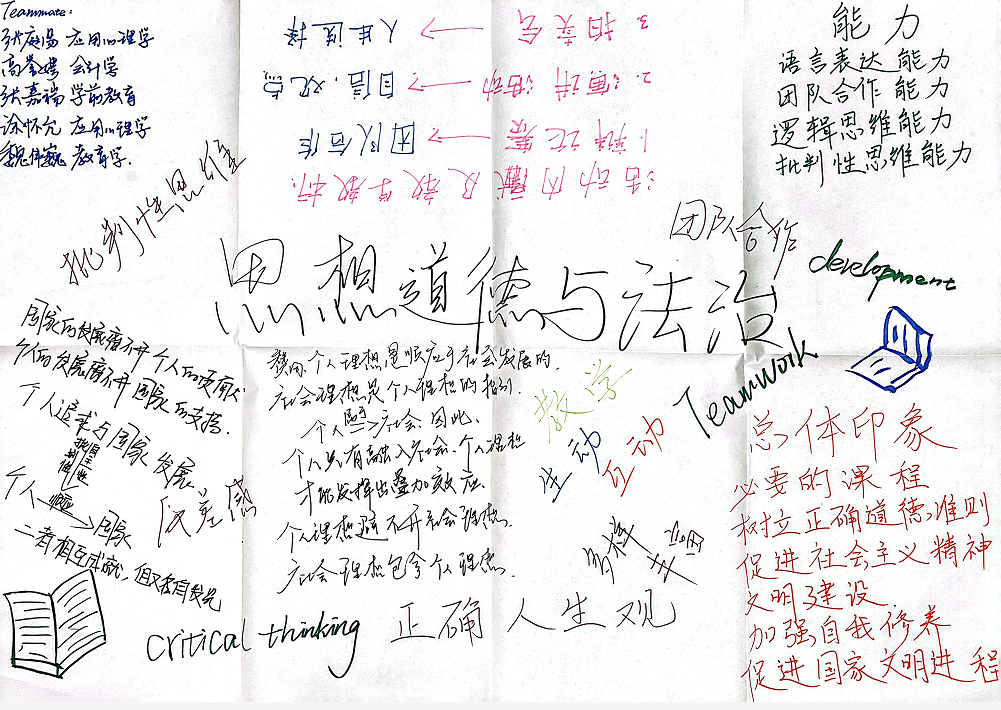 Teammate:
张庭瑒 应用心理学
高
会计学
张嘉瑞 学前教育
涂怀允 应用心理学
魏伟巍 教育学.
3. 相亲会 → 人生选择
2. 演讲活动 → 自信、观点
1. 辩论赛 → 团队合作
活动内蕴及教学教板.
能力
语言表达能力
团队合作能力
逻辑思维能力
批判性思维能力
批判性思维
团队合作
development
思想道德与法治
国家的发展离不开个人的贡献
个人的发展离不开国家的支持.
个人追求与国家发展.
个人→国家
二者相互成就, 但又有
反差感
个人理想是顺应于社会发展的.
社会理想是个人理想的指引.
个人→社会. 因此.
个人只有融入社会. 个人理想
才能发挥出叠加效应.
个人理想离不开社会理想.
社会理想包含个人理想.
教学
生动
互动
TeamWork
多样
总体印象
必要的课程
树立正确道德准则
促进社会主义精神
文明建设.
加强自我修养
促进国家文明进程
critical thinking
正确人生观